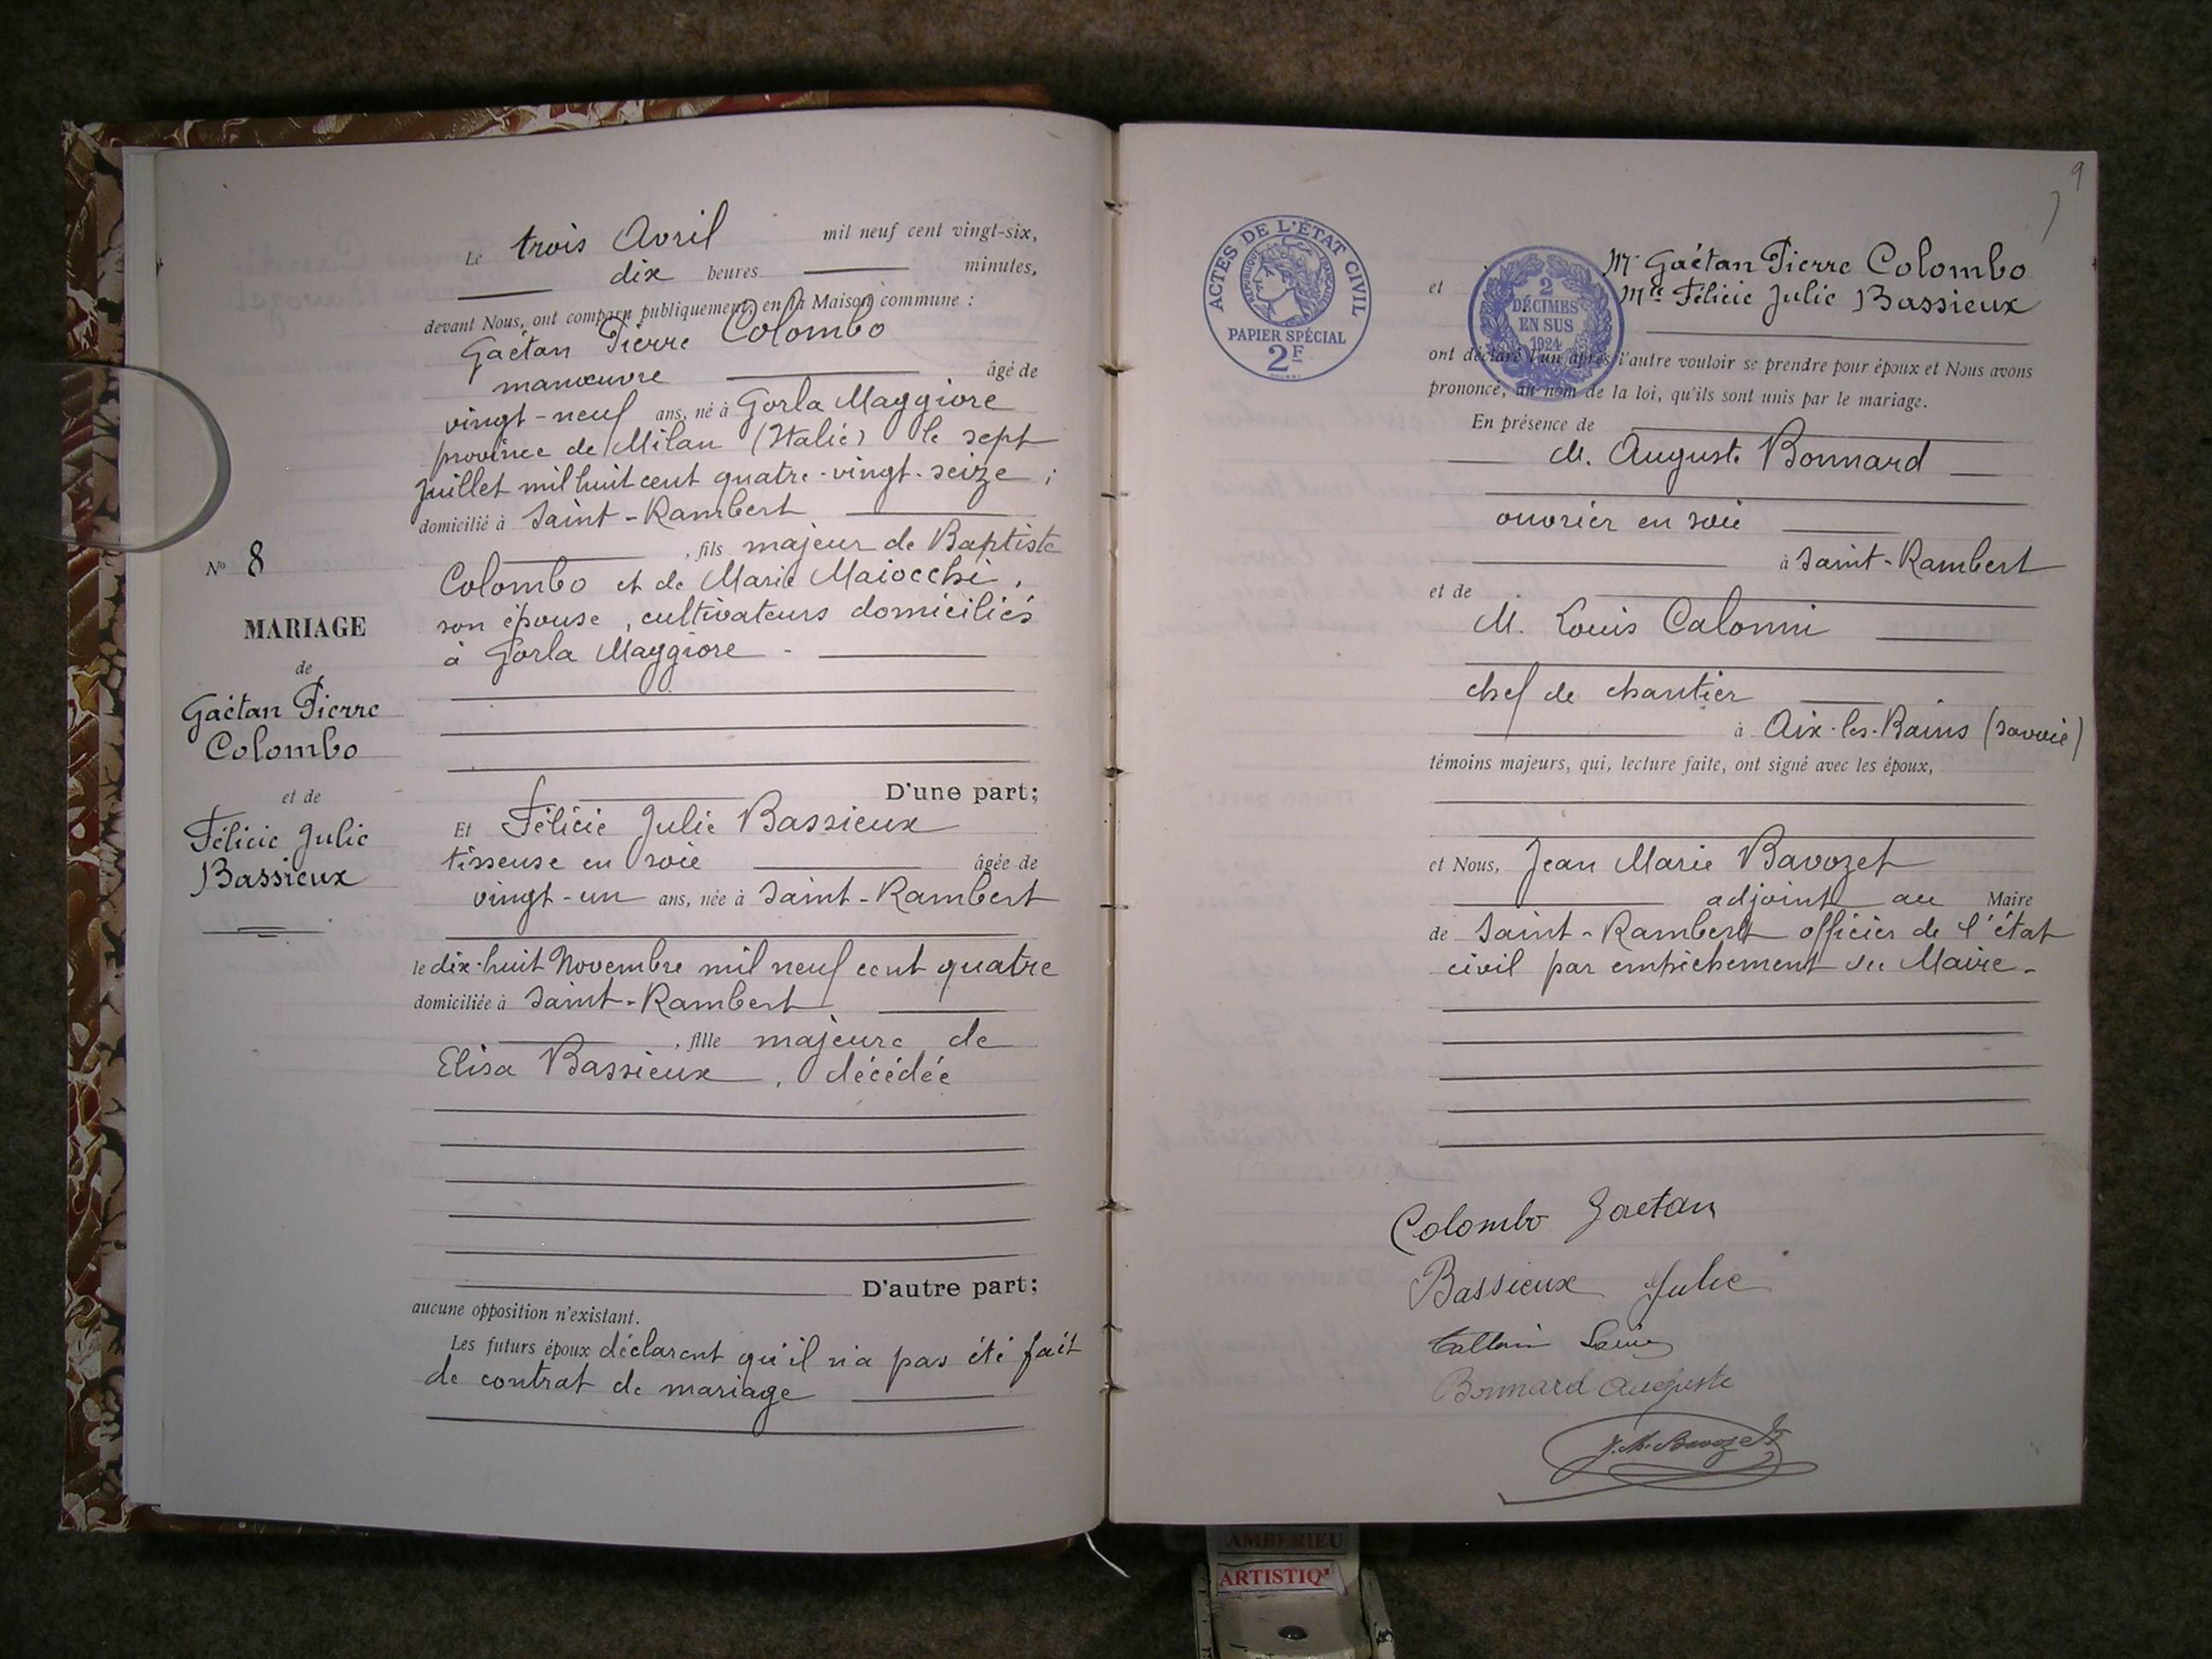 Le trois Avril mil neuf cent vingt-six,
dix heures minutes,
devant Nous, ont comparu publiquement, en la Maison commune :
Gaétan Pierre Colombo
manœuvre âgé de
vingt-neuf ans, né à Gorla Maggiore
province de Milan (Italie) le sept
juillet mil huit cent quatre-vingt-seize ;
domicilié à Saint-Rambert
, fils majeur de Baptiste
Colombo et de Marie Maiocchi,
son épouse, cultivateurs domiciliés
à Gorla Maggiore -
N° 8
MARIAGE
de
Gaétan Pierre
Colombo
et de
Félicie Julie
Bassieux
D'une part;
Et Félicie Julie Bassieux
tisseuse en soie âgée de
vingt-un ans, née à Saint-Rambert
le dix-huit Novembre mil neuf cent quatre
domiciliée à Saint-Rambert
, fille majeure de
Elisa Bassieux, décédée
D'autre part;
aucune opposition n'existant.
Les futurs époux déclarent qu'il n'a pas été fait
de contrat de mariage
9
ACTES DE L'ÉTAT CIVIL
RÉPUBLIQUE FRANÇAISE
PAPIER SPÉCIAL
2F
2
DÉCIMES
EN SUS
1924
Mr Gaétan Pierre Colombo
et Mlle Félicie Julie Bassieux
ont déclaré l'un après l'autre vouloir se prendre pour époux et Nous avons
prononcé, au nom de la loi, qu'ils sont unis par le mariage.
En présence de
M. Auguste Bonnard
ouvrier en soie
à Saint-Rambert
et de
M. Louis Calonni
chef de chantier
à Aix-les-Bains (Savoie)
témoins majeurs, qui, lecture faite, ont signé avec les époux,
et Nous, Jean Marie Bavozet
adjoint au Maire
de Saint-Rambert officier de l'état
civil par empêchement du Maire -
Colombo Gaetan
Bassieux Julie
Bonnard Auguste
J. M. Bavozet
AMBERIEU
ARTISTIQ